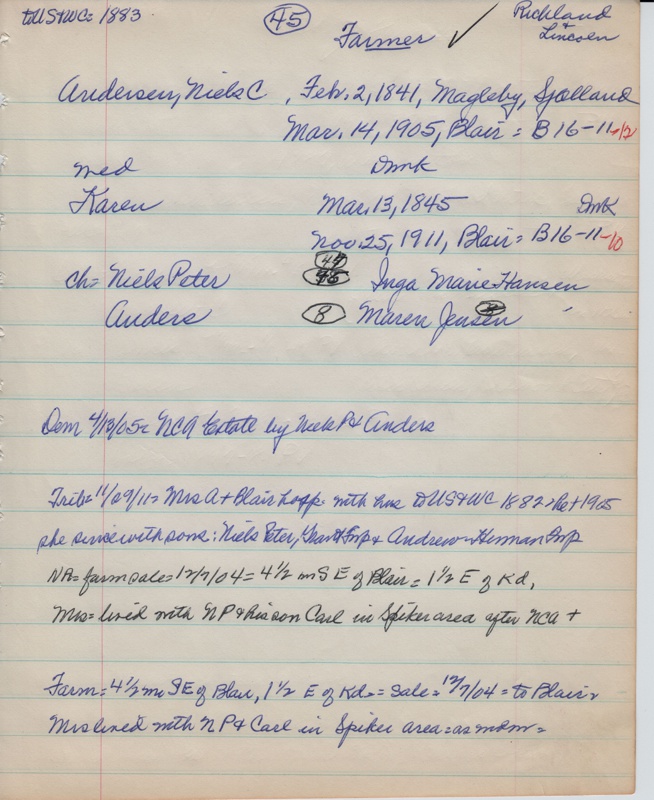 to US+WC= 1883
45
Farmer ✓
Richland + Lincoln
Andersen, Niels C , Feb. 2, 1841, Magleby, Sjolland
Mar. 14, 1905, Blair = B16-11-12
med Dmk
Karen Mar. 13, 1845 Dmk
Nov. 25, 1911, Blair = B16-11-10
47
ch= Niels Peter Inga Marie Hansen
Anders 8 Maren Jensen
Dem 4/13/05= NCA Estate by Niels P + Anders
Trib= 11/29/11= Mrs A + Blair hosp. with hus to US+WC 1882 > he + 1905
she survived with sons: Niels Peter, Grant Twp + Andrew = Herman Twp
NR= farm sale= 12/7/04 = 4 1/2 m S E of Blair = 1 1/2 E of Kd,
Mrs= lived with NP + his son Carl in Spiker area after NCA +
Farm= 4 1/2 m SE of Blair, 1 1/2 E of Kd= = Sale= 12/7/04 = to Blair=
Mrs lived with NP + Carl in Spiker area =